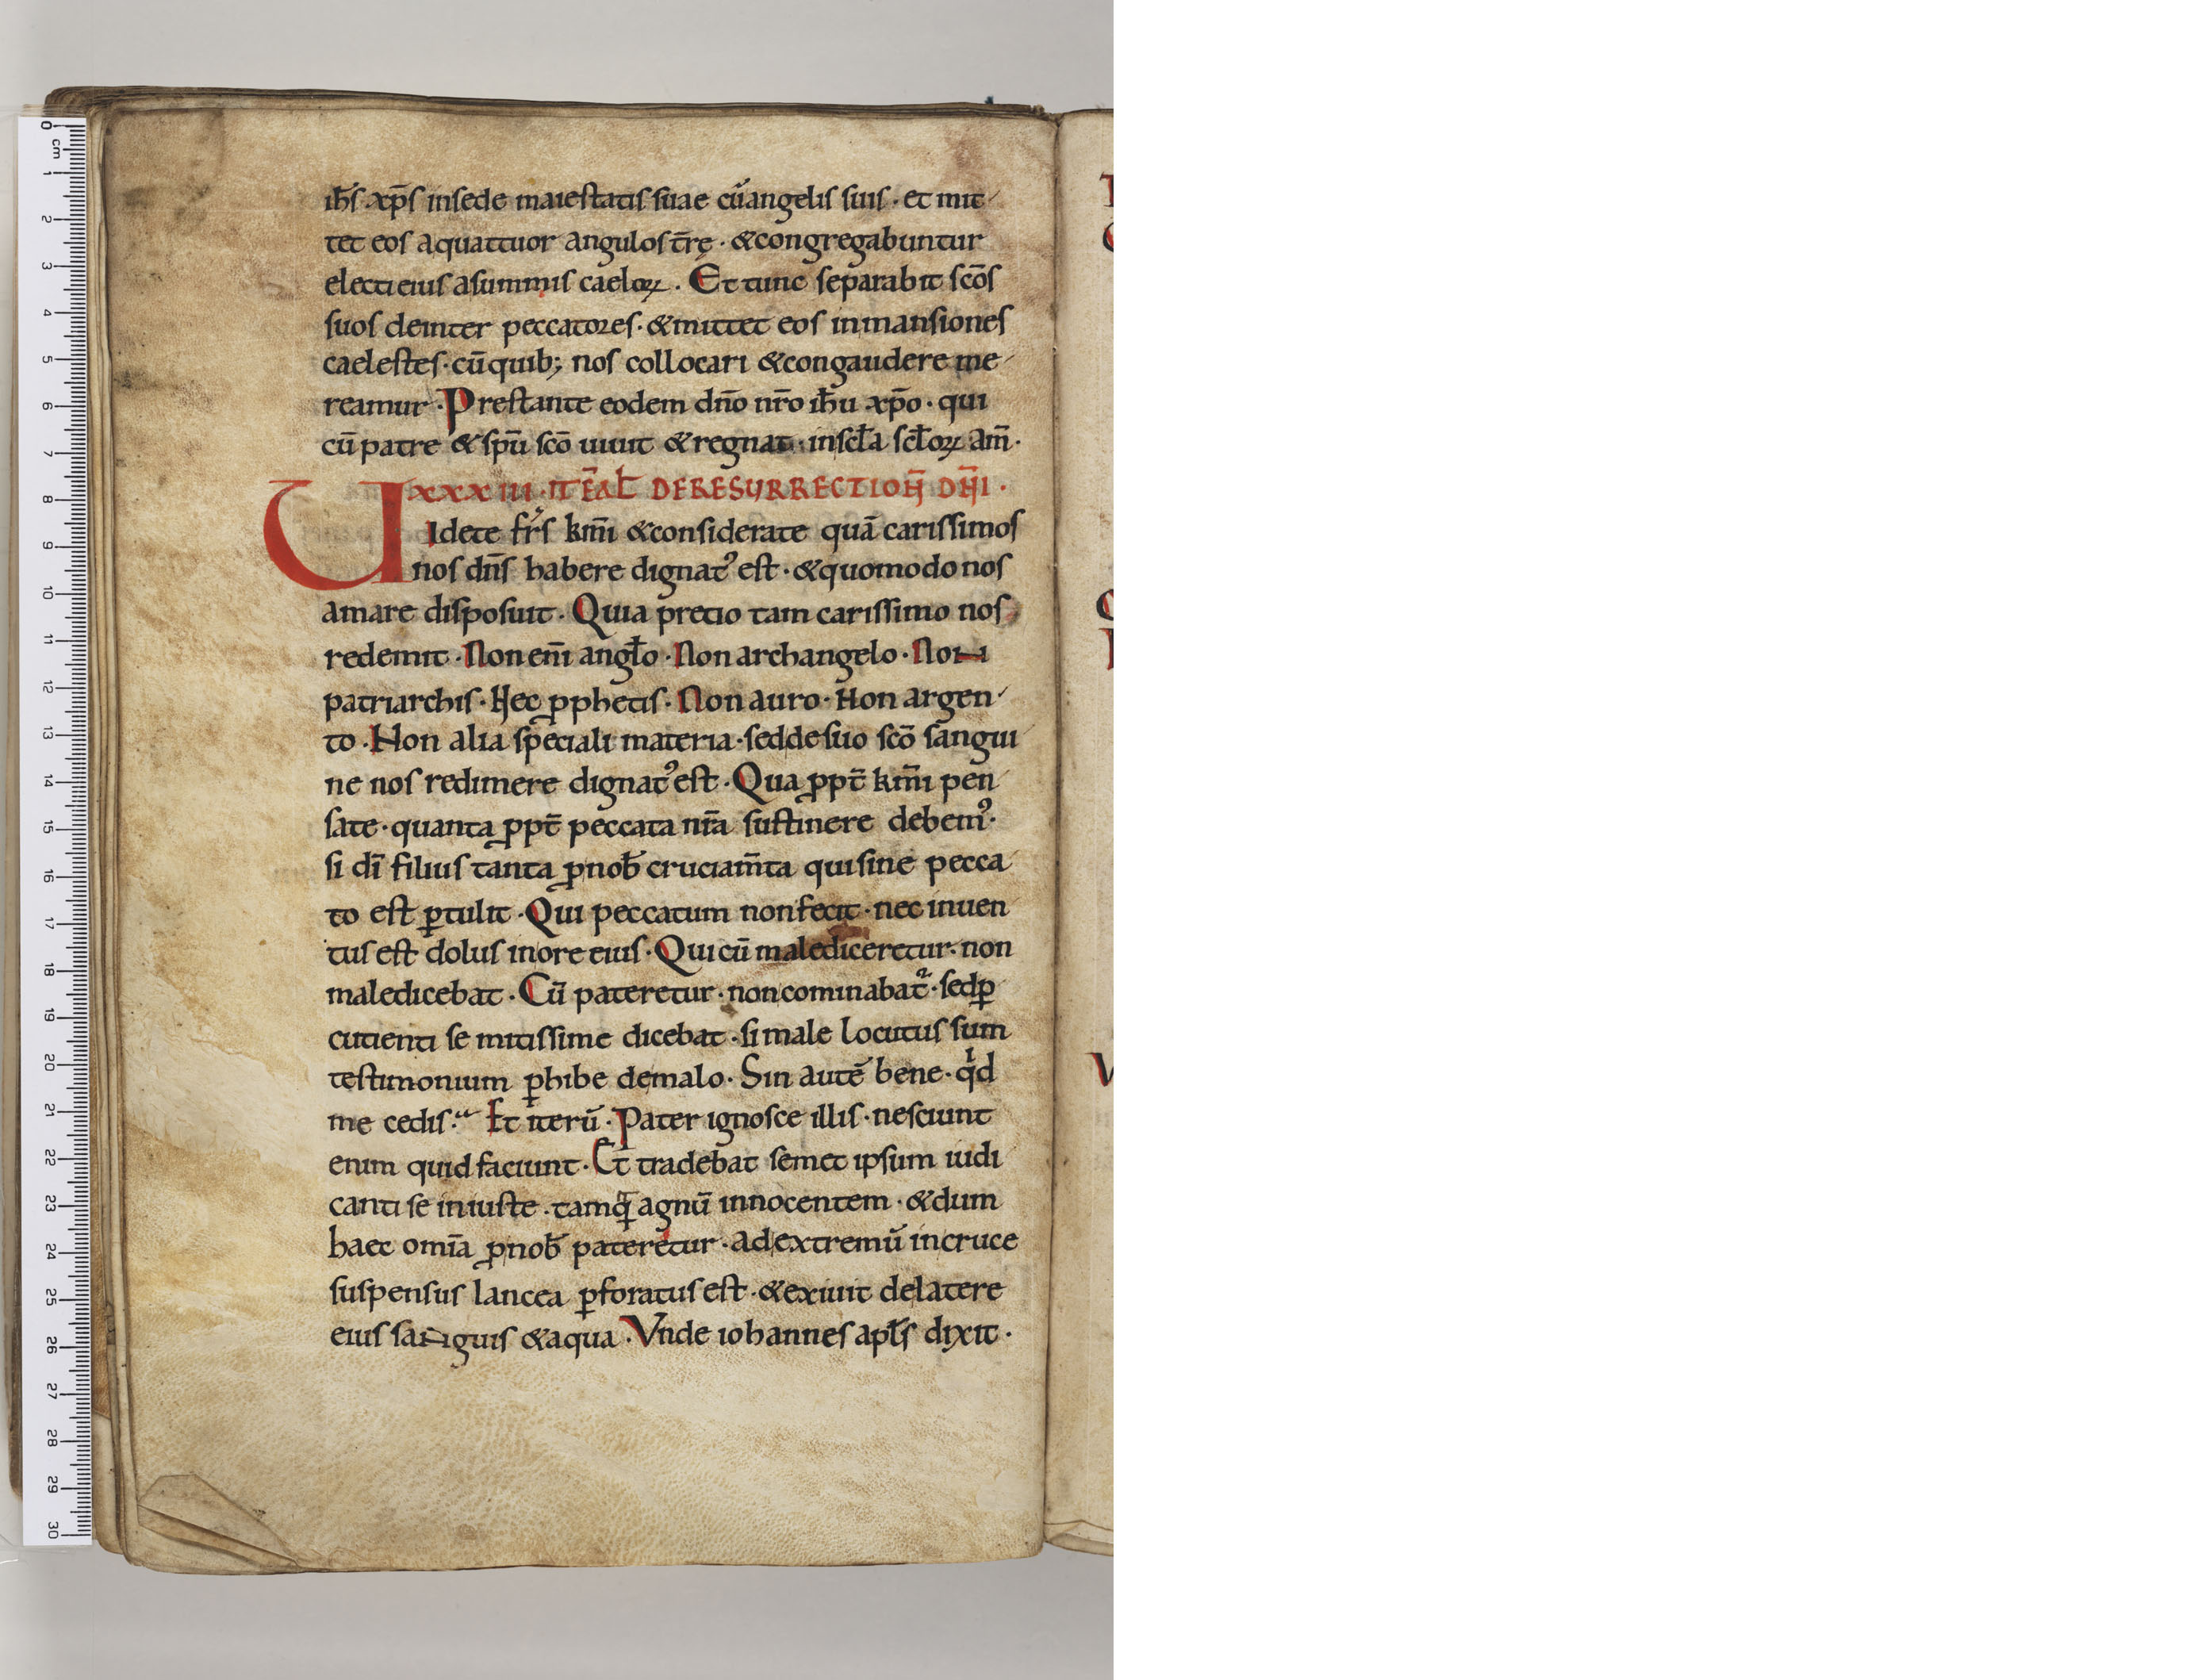 ih̅s xp̅s insede maiestatis suae cu̅angelis suis · et mit-
tet eos aquattuor angulos t̅rę · &congregabuntur
electi eius asummis caeloꝝ. Et tunc separabit sc̅os
suos deinter peccatores · &mittet eos inmansiones
caelestes · cu̅quib; nos collocari &congaudere me-
reamur · Prestante eodem dn̅o nr̅o ih̅u xp̅o · qui
cu̅ patre & sp̅u sc̅o uiuit &regnat · inscl̅a scl̅oꝝ am̅ ·
xxxiii · ITE̅ AL̅ DERESURRECTION̅ DN̅I ·
UIdete fr̅s km̅i &considerate qua̅ carissimos
nos dn̅s habere dignatꝰ est · &quomodo nos
amare disposuit · Quia precio tam carissimo nos
redemit · Non eni̅ angl̅o · Non archangelo · Non
patriarchis · Nec ꝓphetis · Non auro · Non argen-
to · Non alia speciali materia · seddesuo sc̅o sangui
ne nos redimere dignatꝰ est · Qua ꝓpt̅ km̅i pen
sate · quanta ꝓpt̅ peccata nr̅a sustinere debemꝰ ·
si di̅ filius tanta ꝓnob̅ cruciam̅ta quisine pecca
to est ꝑtulit · Qui peccatum nonfecit · nec inuen
tus est dolus inore eius · Qui cu̅ malediceretur · non
maledicebat · Cu̅ pateretur · noncominabat᷑ · sedꝑ
cutienti se mitissime dicebat · simale locutus sum
testimonium ꝑhibe demalo · Sin aute̅ bene · qͥd
me cedis · Et iteru̅ · Pater ignosce illis · nesciunt
enim quid faciunt · Et tradebat semet ipsum iudi
canti se iniuste · tamq̅ agnu̅ innocentem · &dum
haec omi̅a ꝓnob̅ pateretur · adextremu̅ incruce
suspensus lancea ꝑforatus est · &exiuit delatere
eius sanguis &aqua · Vnde iohannes apl̅s dixit ·
0 cm 1 2 3 4 5 6 7 8 9 10 11 12 13 14 15 16 17 18 19 20 21 22 23 24 25 26 27 28 29 30